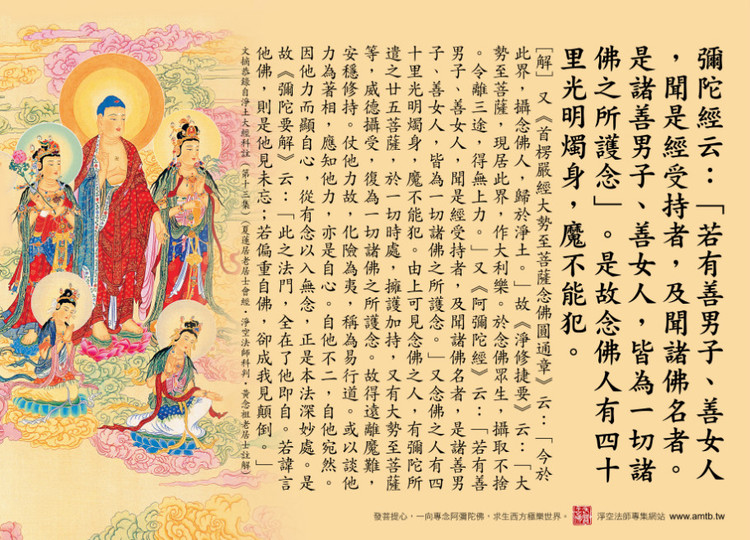 彌陀經云：「若有善男子、善女人
，聞是經受持者，及聞諸佛名者。
是諸善男子、善女人，皆為一切諸
佛之所護念」。是故念佛人有四十
里光明燭身，魔不能犯。
［解］又《首楞嚴經大勢至菩薩念佛圓通章》云：「今於
此界，攝念佛人，歸於淨土。」故《淨修捷要》云：「大
勢至菩薩，現居此界，作大利樂。於念佛眾生，攝取不捨
。令離三途，得無上力。」又《阿彌陀經》云：「若有善
男子、善女人，聞是經受持者，及聞諸佛名者，是諸善男
子、善女人，皆為一切諸佛之所護念。」又念佛之人有四
十里光明燭身，魔不能犯。由上可見念佛之人，有彌陀所
遣之廿五菩薩，於一切時處，擁護加持，又有大勢至菩薩
等，威德攝受，復為一切諸佛之所護念。故得遠離魔難，
安穩修持。仗他力故，化險為夷，稱為易行道。或以談他
力為著相，應知他力，亦是自心。自他不二，自他宛然。
因他力而顯自心，從有念以入無念，正是本法深妙處。是
故《彌陀要解》云：「此之法門，全在了他即自。若諱言
他佛，則是他見未忘；若偏重自佛，卻成我見顛倒。」
文摘恭錄自淨土大經科註（第十三集）《夏蓮居老居士會經‧淨空法師科判‧黃念祖老居士註解》
發菩提心，一向專念阿彌陀佛，求生西方極樂世界。
淨空法師專集網站 www.amtb.tw